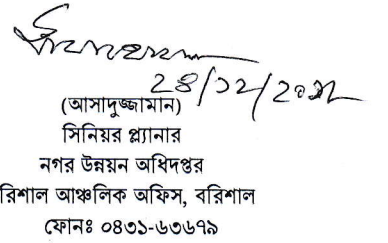 ২৪/১২/২০১২
(আসাদুজ্জামান)
সিনিয়র প্ল্যানার
নগর উন্নয়ন অধিদপ্তর
রিশাল আঞ্চলিক অফিস, বরিশাল
ফোনঃ ০৪৩১-৬৩৬৭৯